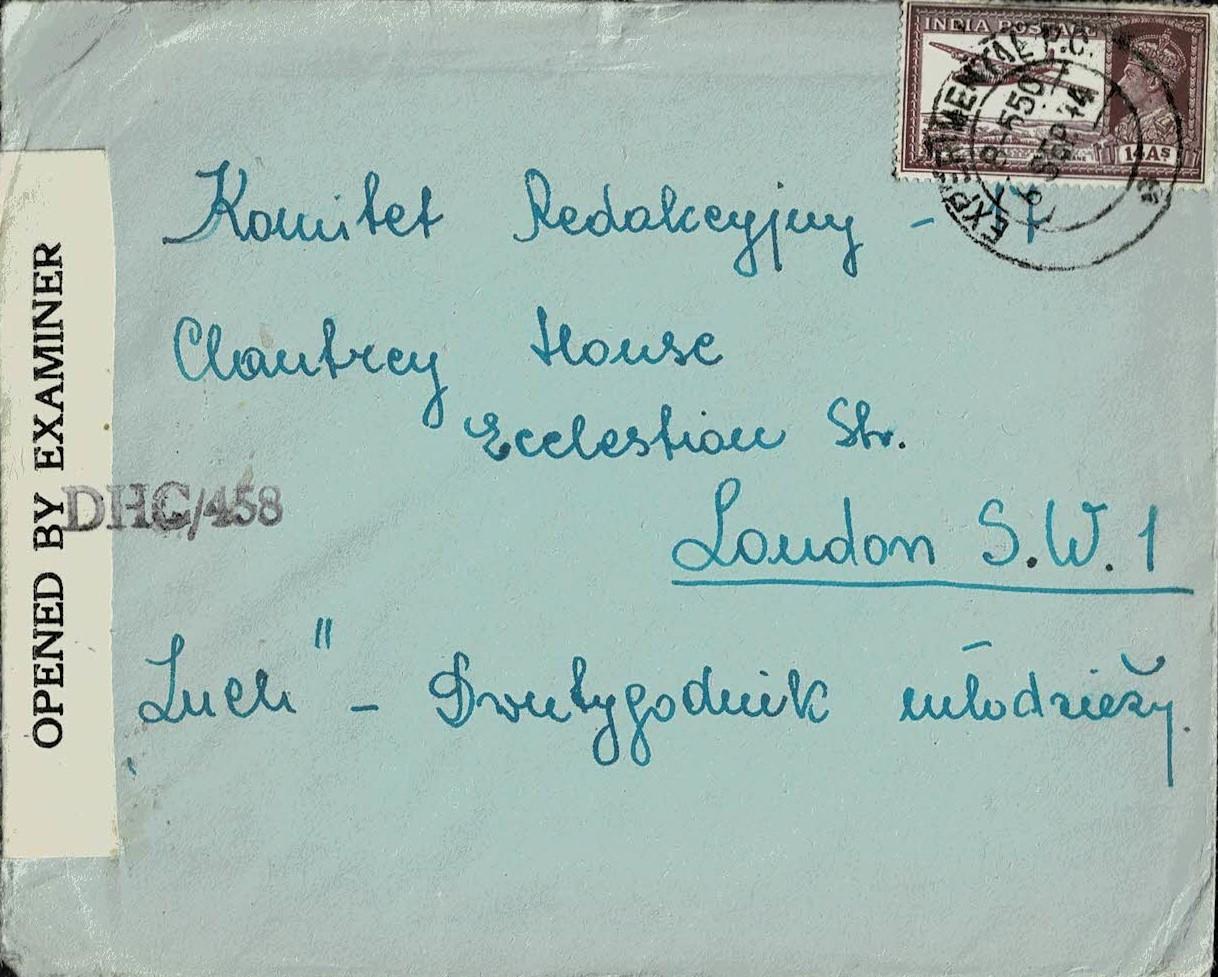 INDIA POSTAGE
14 As
EXPERIMENTAL P.O.
B-550
6 SEP 44
Komitet Redakcyjny -
Chantrey House
Ecclestion Str.
London S.W. 1
"Ruch" - Dwutygodnik młodzieży.
OPENED BY EXAMINER
DHC/458